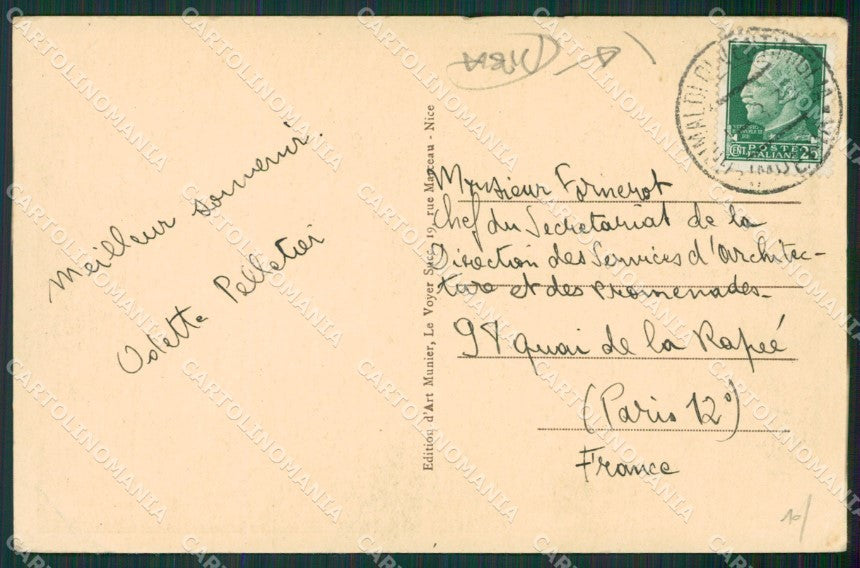 Meilleur souvenir.
Odette Pelletier
Edition d'Art Munier, Le Voyer Succ., 19, rue Marceau - Nice
Monsieur Fornerot
Chef du Secretariat de la
Direction des Services d'Architec-
ture et des Promenades-
98 quai de la Rapeé
(Paris 12°)
France
POSTE
ITALIANE
CENT. 25
GRIMALDI DI VENTIMIGLIA
10/
CARTOLINOMANIA